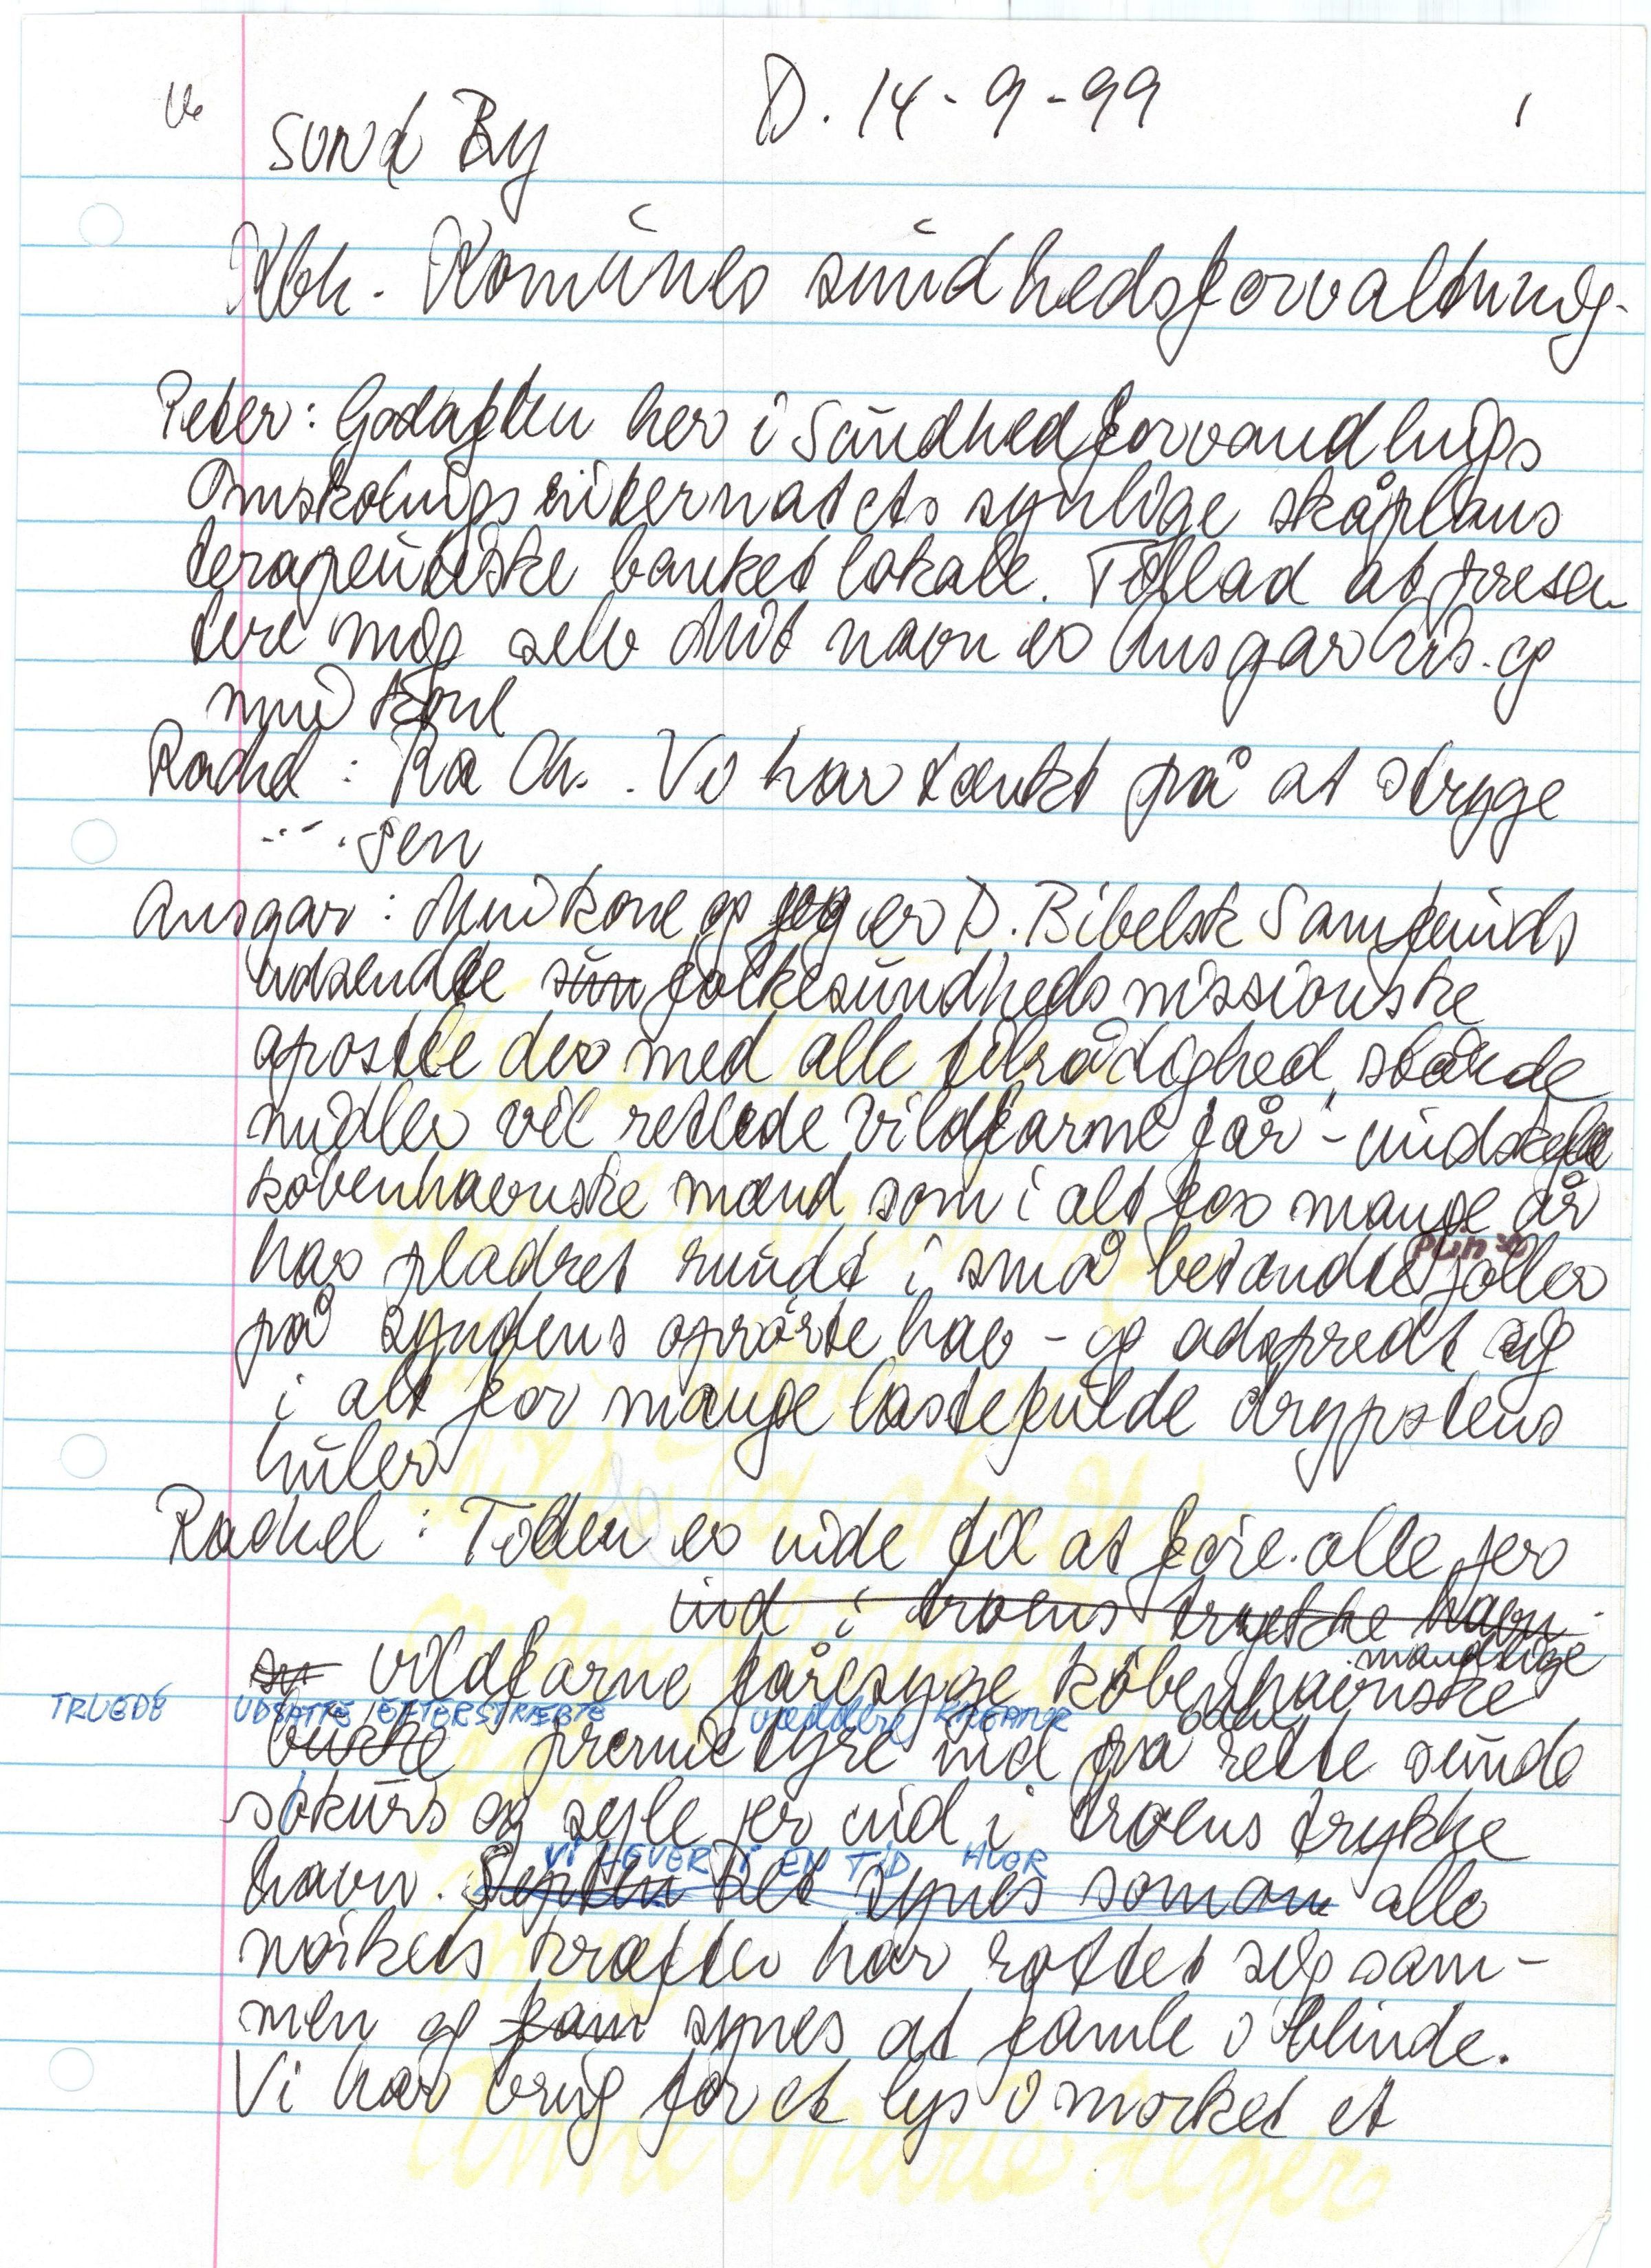 SUND BY D. 14-9-99 1
Kbh. Komunes sundhedsforvaltning.
Peter: Godaften her i Sundhedforvandlings
Omskolings internatets synlige skåplans
terapeutiske banket lokale. Tillad at presen
tere mig selv Mit navn er Ansgar Krs. og
min kone
Rachel: Ra Ch. Vi har tænkt på at stryge
... sen
Ansgar: Min kone og jeg er D. Bibelsk Samfunds
udsendte sun folkesundheds missionske
apostle der med alle tilrådighed stående
midler vil retlede vildfarne får - undskyld
københavnske mænd som i alt for mange år
har pladret rundt i små betændte joller
på syndens oprørte hav - og adspredt sig
i alt for mange lastefulde drypstens
huler
Rachel: Tiden er inde til at føre alle jer
ind i troens trygke havn.
mandlige
sy vildfarne fåresyge københavnske
TRUEDE UDSATTE EFTERSTRÆBTE væddere KREATUR
bukke premietyre ind på rette sunde
søkurs og sejle jer ind i troens trykke
VI LEVER I EN TID HVOR
havn. Det synes som om alle
mørkets kræfter har rottet sig sam-
men og fam synes at famle i blinde.
Vi har brug for et lys i mørket et